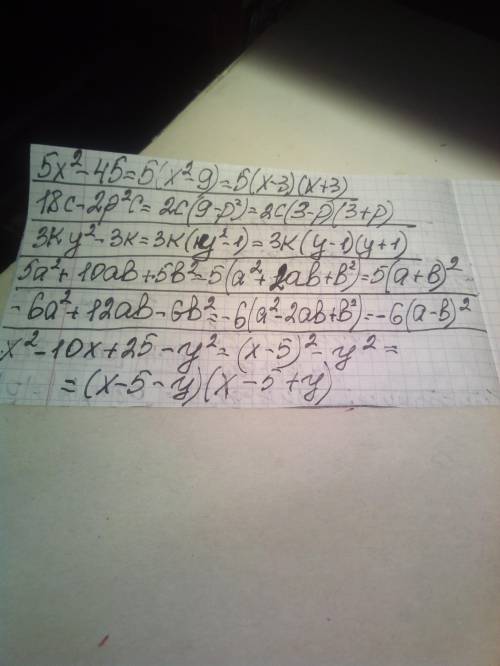 5x² - 45 = 5(x² - 9) = 5(x-3)(x+3)
18c - 2p²c = 2c(9-p²) = 2c(3-p)(3+p)
3ky² - 3k = 3k(y² - 1) = 3k(y-1)(y+1)
5a² + 10ab + 5b² = 5(a² + 2ab + b²) = 5(a+b)²
-6a² + 12ab - 6b² = -6(a² - 2ab + b²) = -6(a-b)²
x² - 10x + 25 - y² = (x-5)² - y² =
= (x-5-y)(x-5+y)